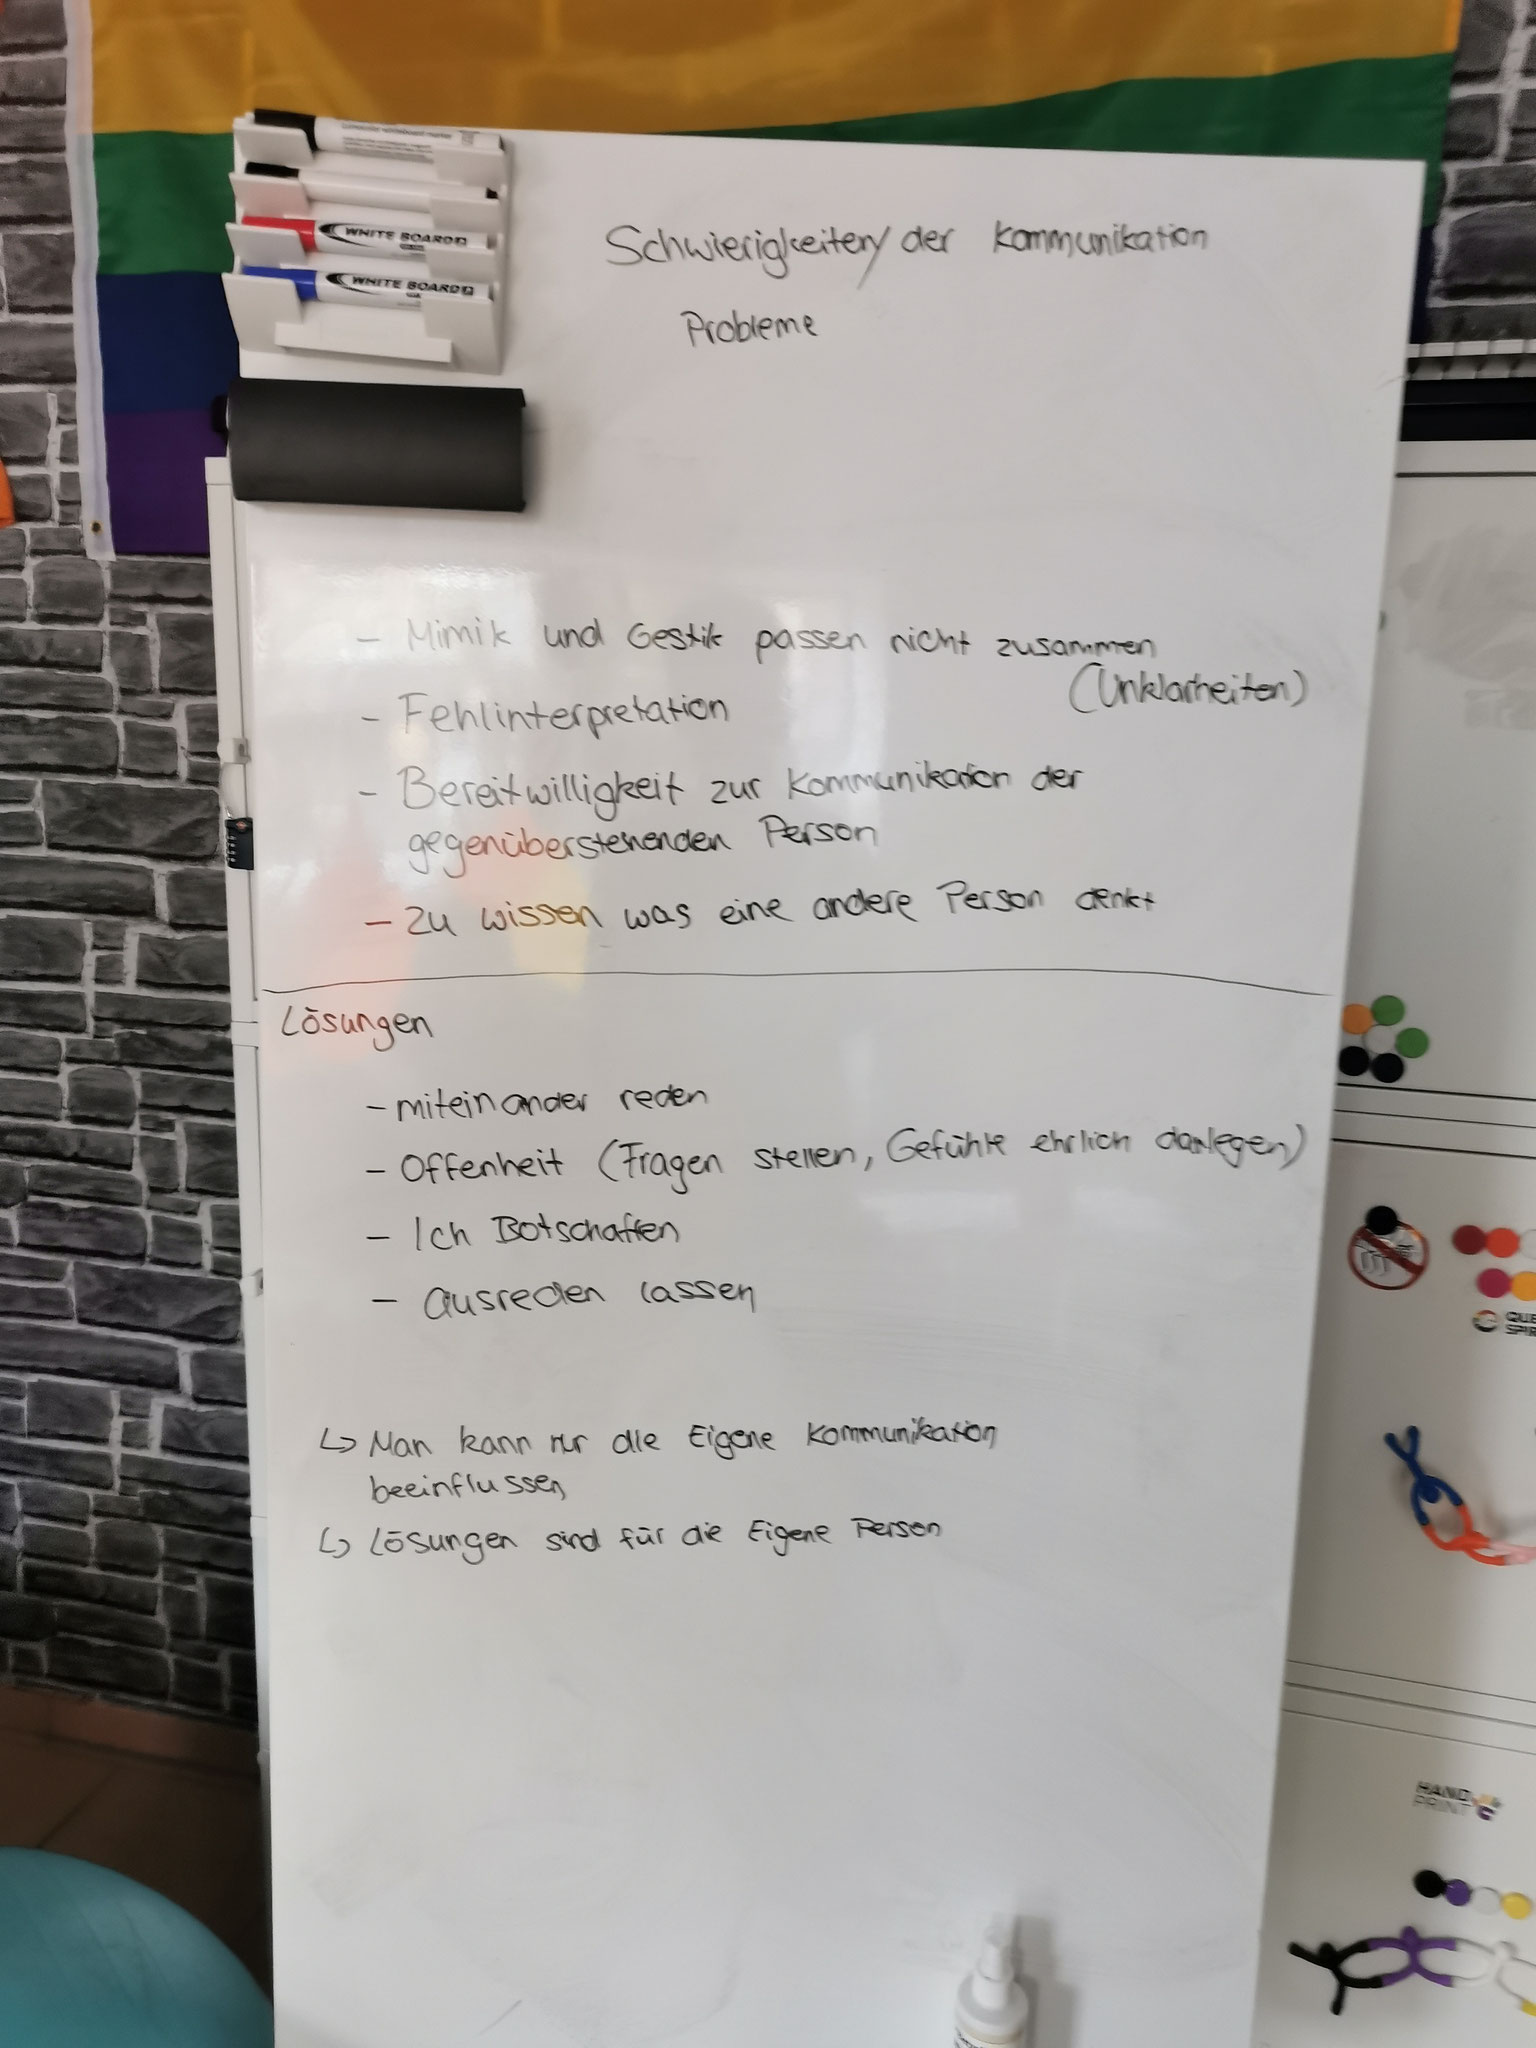 WHITE BOARD
WHITE BOARD
Schwierigkeiten/ der Kommunikation
Probleme
- Mimik und Gestik passen nicht zusammen
(Unklarheiten)
- Fehlinterpretation
- Bereitwilligkeit zur Kommunikation der
gegenüberstehenden Person
- zu wissen was eine andere Person denkt
Lösungen
- miteinander reden
- Offenheit (Fragen stellen, Gefühle ehrlich darlegen)
- Ich Botschaften
- ausreden lassen
↳ Man kann nur die Eigene Kommunikation
beeinflussen
↳ Lösungen sind für die Eigene Person
HAND
PRINT